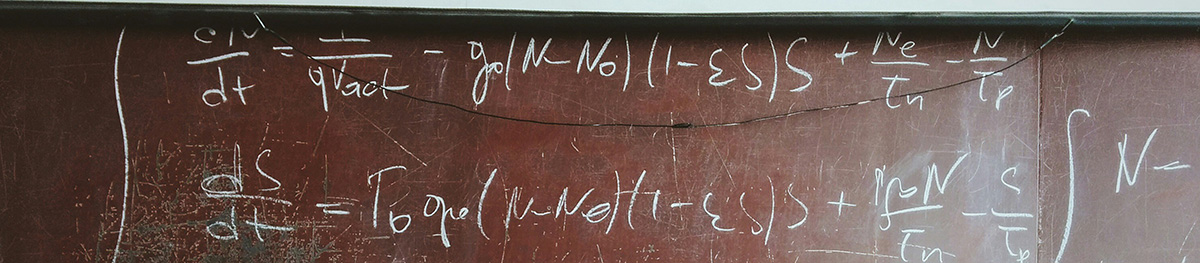 dN/dt = I/qVact - g0(N-N0)(1-εS)S + Ne/τn - N/τp
dS/dt = Γ0 g0(N-N0)(1-εS)S + N/τn - S/τp ∫ N =